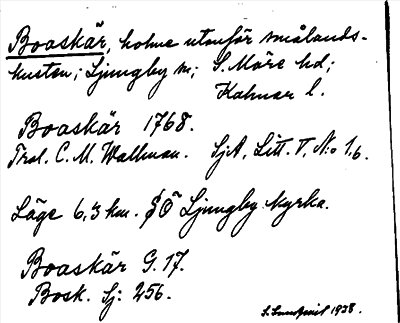 Boaskär, holme utanför smålands-
kusten; Ljungby sn; S. Möre hd;
Kalmar l.
Boaskär 1768.
Trol. C. M. Wallman. SjA, Litt. T, No 1.6.
Läge 6,3 km. SÖ Ljungby kyrka.
Boaskär G. 17.
Bosk. Sj: 256.
S. Lundqvist 1938.